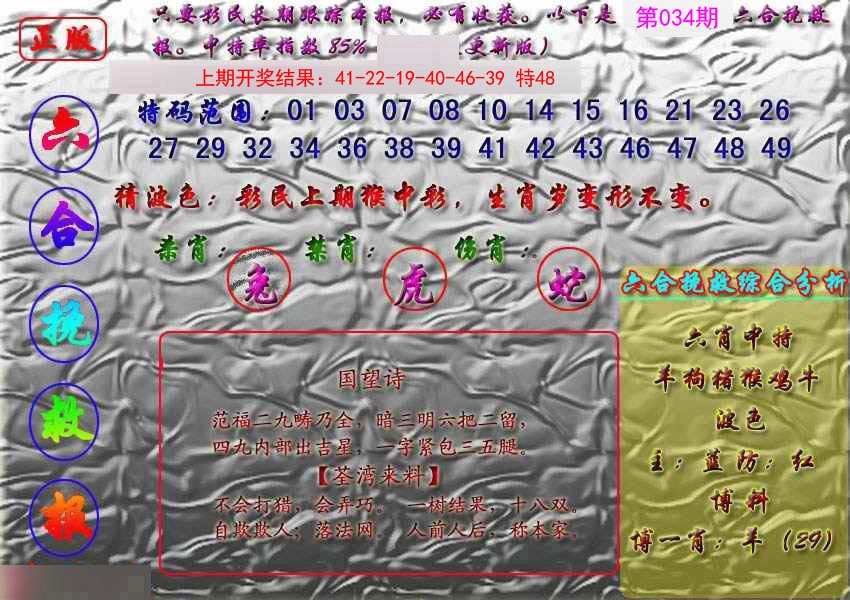 正版
只要彩民长期跟踪本报，必有收获。以下是 第034期 六合挽救
报。中特率指数85% 更新版）
上期开奖结果：41-22-19-40-46-39 特48
六合挽救报
特码范围：01 03 07 08 10 14 15 16 21 23 26
27 29 32 34 36 38 39 41 42 43 46 47 48 49
猜波色：彩民上期猴中彩，生肖岁变形不变。
杀肖： 禁肖： 伤肖：
兔 虎 蛇
国望诗
范福二九畴乃全，暗三明六把二留，
四九内部出吉星，一字紧包三五腿。
【荃湾来料】
不会打猎，会弄巧。 一树结果，十八双。
自欺欺人，落法网。 人前人后，称本家。
六合挽救综合分析
六肖中特
羊狗猪猴鸡牛
波色
主：蓝防：红
博料
博一肖：羊（29）